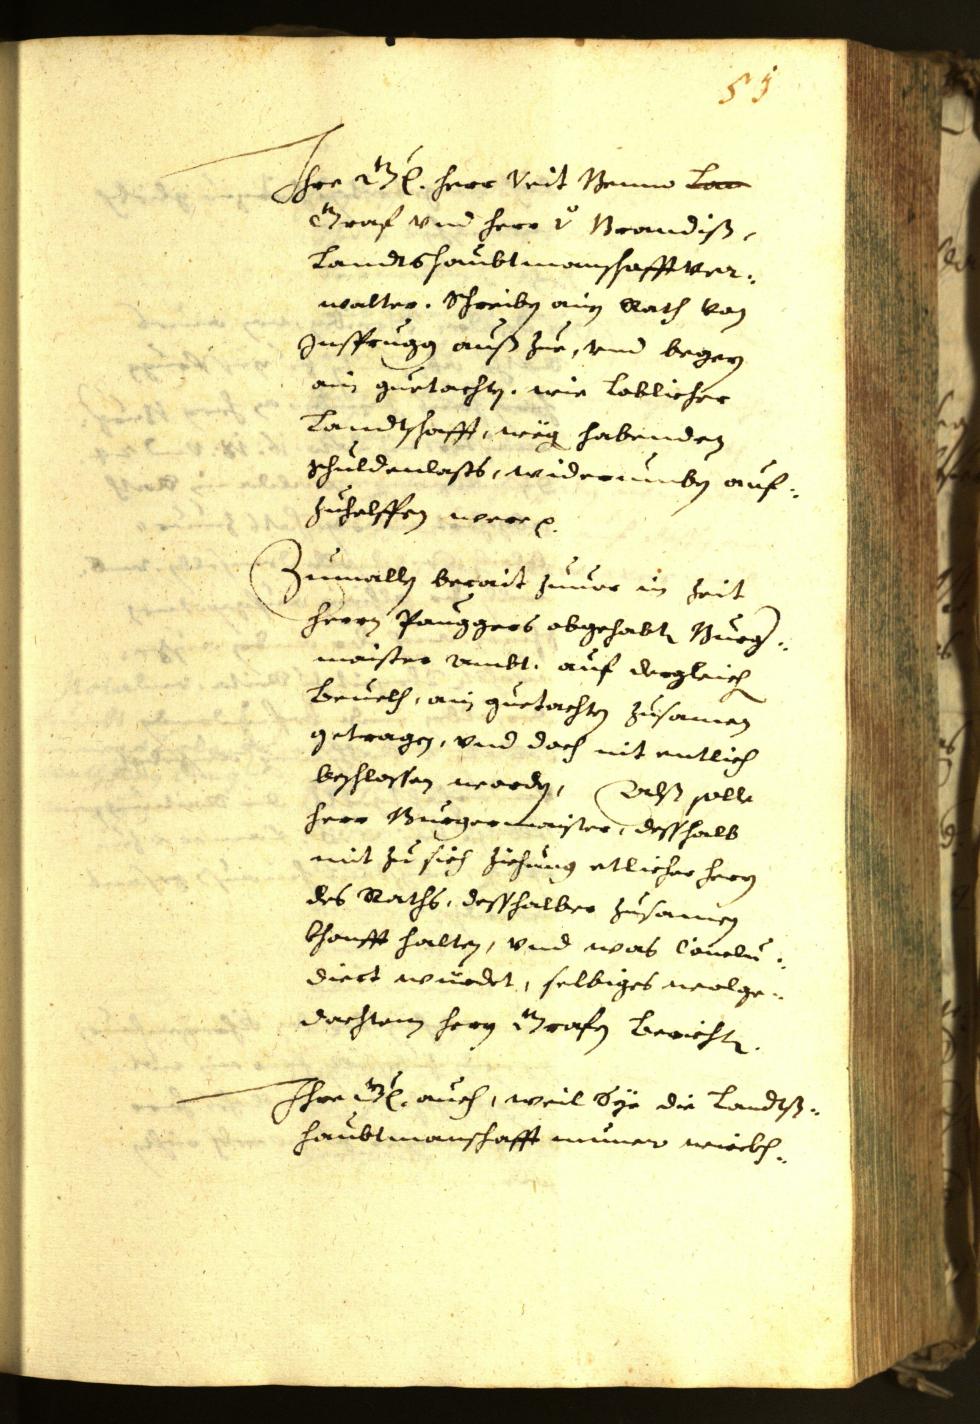 51
Ihre Gn. herr Veit Benno Lan
Graf vnd herr v. Brandiß,
Landtshaubtmanschafft Ver-
walter. Schreiben ain Rath von
Insprugg auß zue, vnd begern
ain guetachten. wie Loblicher
Landtschafft, weg habenden
schuldenlasts, widerumben auf-
zuhelffen were.
Zumallen berait zuuor in Zeit
herrn Pauggers obgehabten Burg-
maister Ambt. auf dergleich
Beuelh, ain guetachten zusamen
getragen, vnd doch nit entlich
beschlossen worden, Alß solle
herr Burgermaister, desshalb
mit zu sich Ziehung etlicher herrn
des Raths, desshalber zusamen
khonfft halten, vnd was Conclu-
diert wurdet, selbiges wolge-
dachtem herrn Grafen Berichten.
Ihre Gn. auch, weil Sye die Landtß-
haubtmanschafft numer